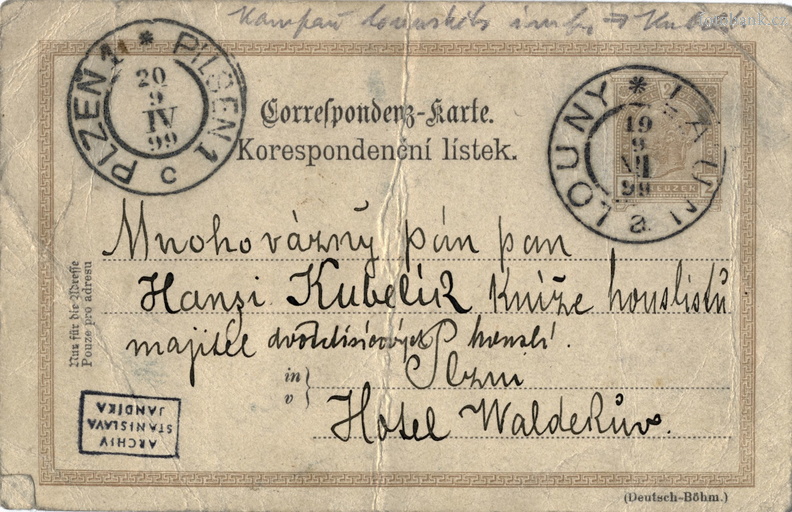 fotobank.cz
PLZEN 1 * PILSEN 1
20
9
IV
99
c
Correspondenz-Karte.
Korespondenční lístek.
LOUNY * LAUN
19
9
99
a
2
KREUZER
Mnohovázný pán pan
Hanzi Kubelík Kníže houslistů
majitel houslí.
Nur für die Adresse
Pouze pro adresu
in
v
Plzni
Hotel Walderův.
ARCHIV
STANISLAVA
JANDÍKA
(Deutsch-Böhm.)